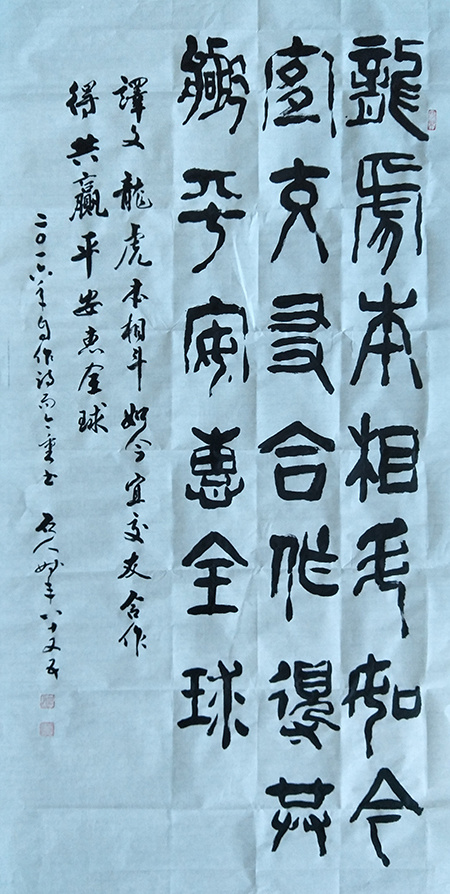 龍虎本相斗如今
宜交友合作得共
贏平安惠全球
譯文 龍虎本相斗 如今宜交友 合作
得共贏 平安惠全球
二〇一六年自作诗而今重书 人时年八十又五